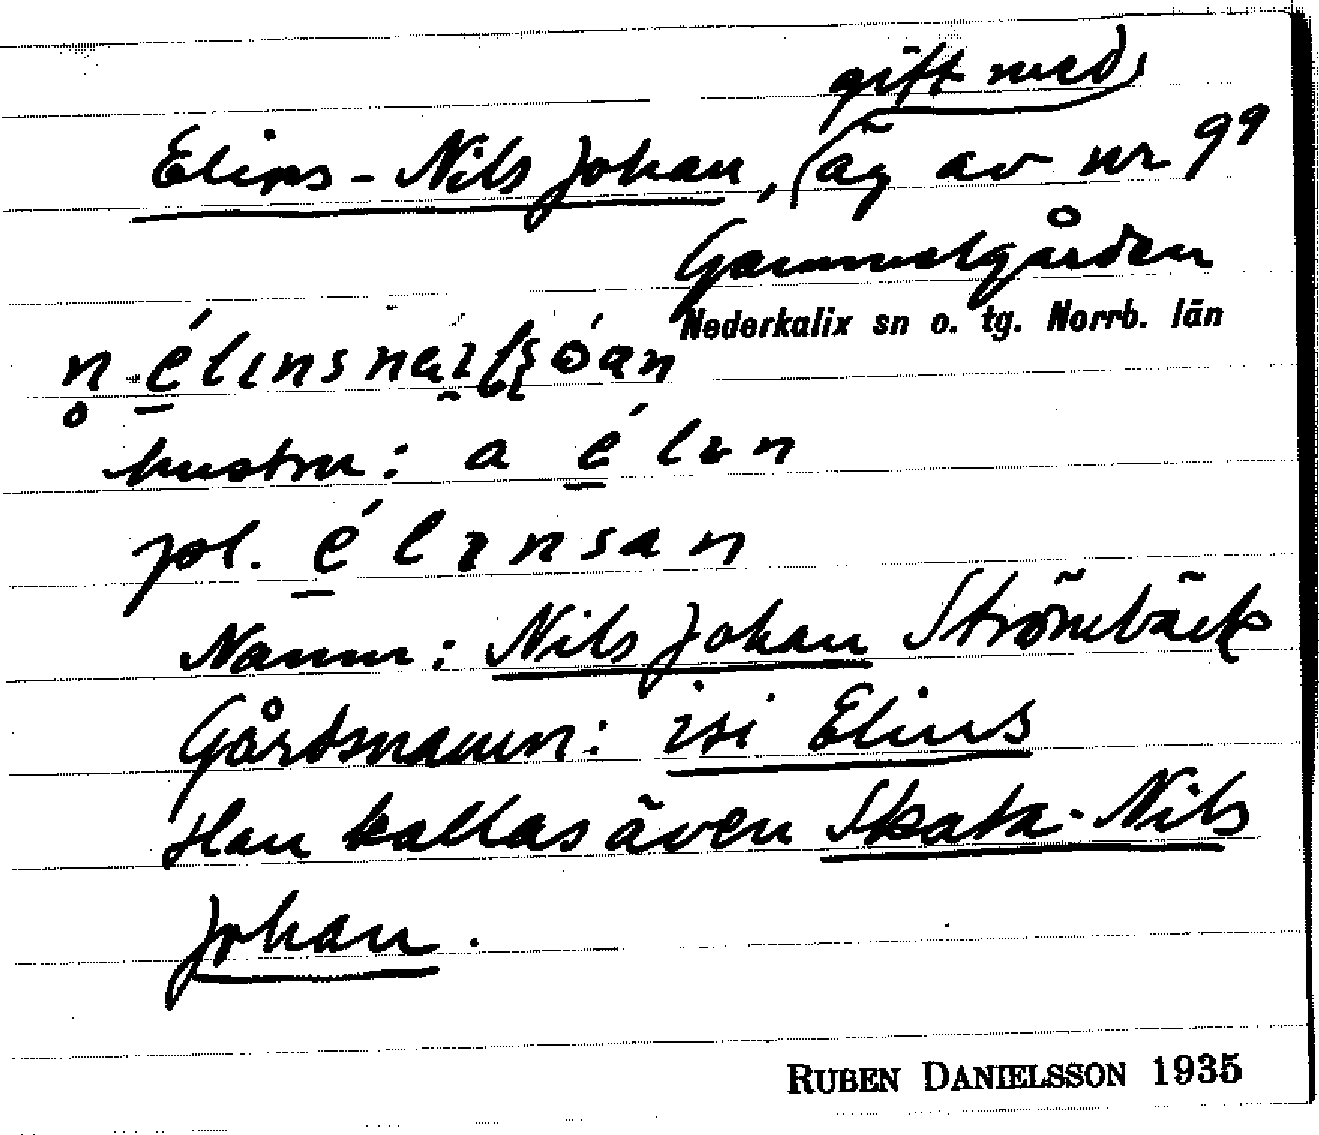 gift med
Elins-Nils Johan, (äg av nr 9⁹
Gammelgården
Nederkalix sn o. tg. Norrb. län
hustru: a élɩn
pl. élɩnsan
Namn: Nils Johan Strömbäck
Gårdsnamn: isi Elins
Han kallas även Skata-Nils
Johan.
RUBEN DANIELSSON 1935